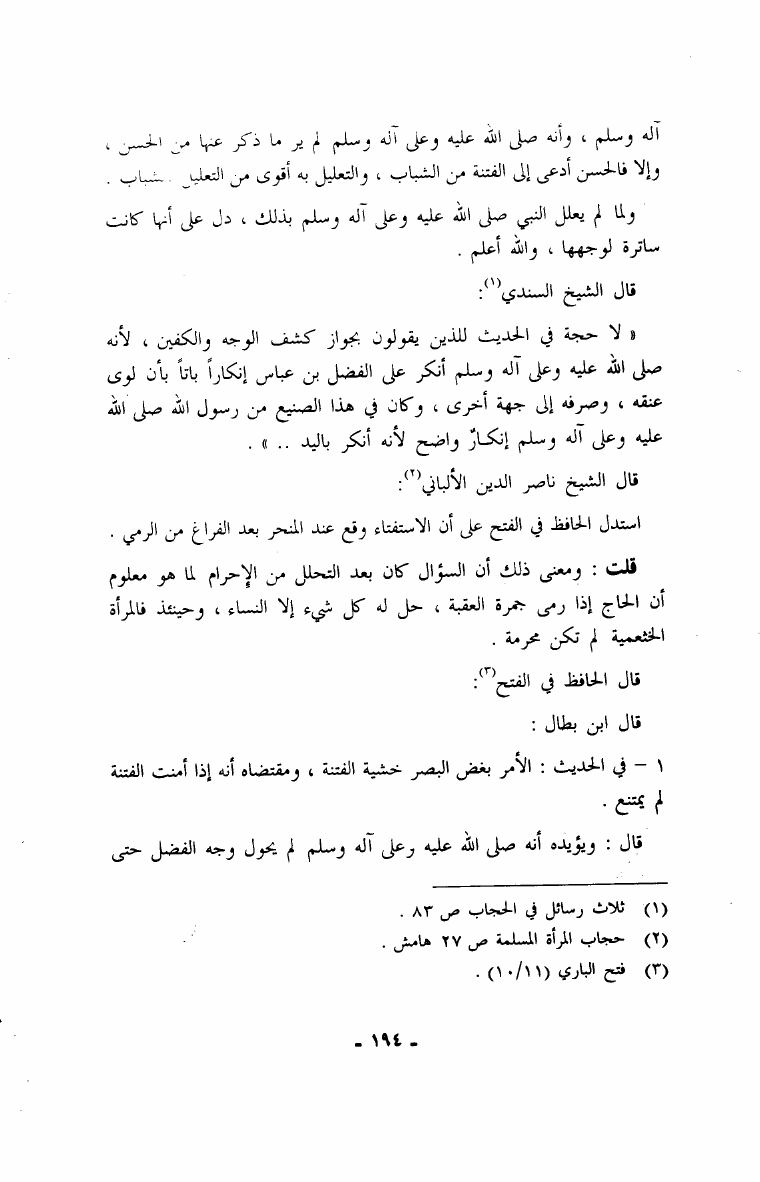 آله وسلم ، وأنه صلى الله عليه وعلى آله وسلم لم ير ما ذكر عنها من الحسن ،
وإلا فالحسن أدعى إلى الفتنة من الشباب ، والتعليل به أقوى من التعليل بشباب .
ولما لم يعلل النبي صلى الله عليه وعلى آله وسلم بذلك ، دل على أنها كانت
ساترة لوجهها ، والله أعلم .
قال الشيخ السندي(١):
« لا حجة في الحديث للذين يقولون بجواز كشف الوجه والكفين ، لأنه
صلى الله عليه وعلى آله وسلم أنكر على الفضل بن عباس إنكاراً باتاً بأن لوى
عنقه ، وصرفه إلى جهة أخرى ، وكان في هذا الصنيع من رسول الله صلى الله
عليه وعلى آله وسلم إنكارٌ واضح لأنه أنكر باليد .. » .
قال الشيخ ناصر الدين الألباني(٢):
استدل الحافظ في الفتح على أن الاستفتاء وقع عند المنحر بعد الفراغ من الرمي .
قلت : ومعنى ذلك أن السؤال كان بعد التحلل من الإحرام لما هو معلوم
أن الحاج إذا رمى جمرة العقبة ، حل له كل شيء إلا النساء ، وحينئذ فالمرأة
الخثعمية لم تكن محرمة .
قال الحافظ في الفتح(٣):
قال ابن بطال :
١ – في الحديث : الأمر بغض البصر خشية الفتنة ، ومقتضاه أنه إذا أمنت الفتنة
لم يمتنع .
قال : ويؤيده أنه صلى الله عليه وعلى آله وسلم لم يحول وجه الفضل حتى
(١) ثلاث رسائل في الحجاب ص ٨٣ .
(٢) حجاب المرأة المسلمة ص ٢٧ هامش .
(٣) فتح الباري (١٠/١١) .
- ١٩٤ -